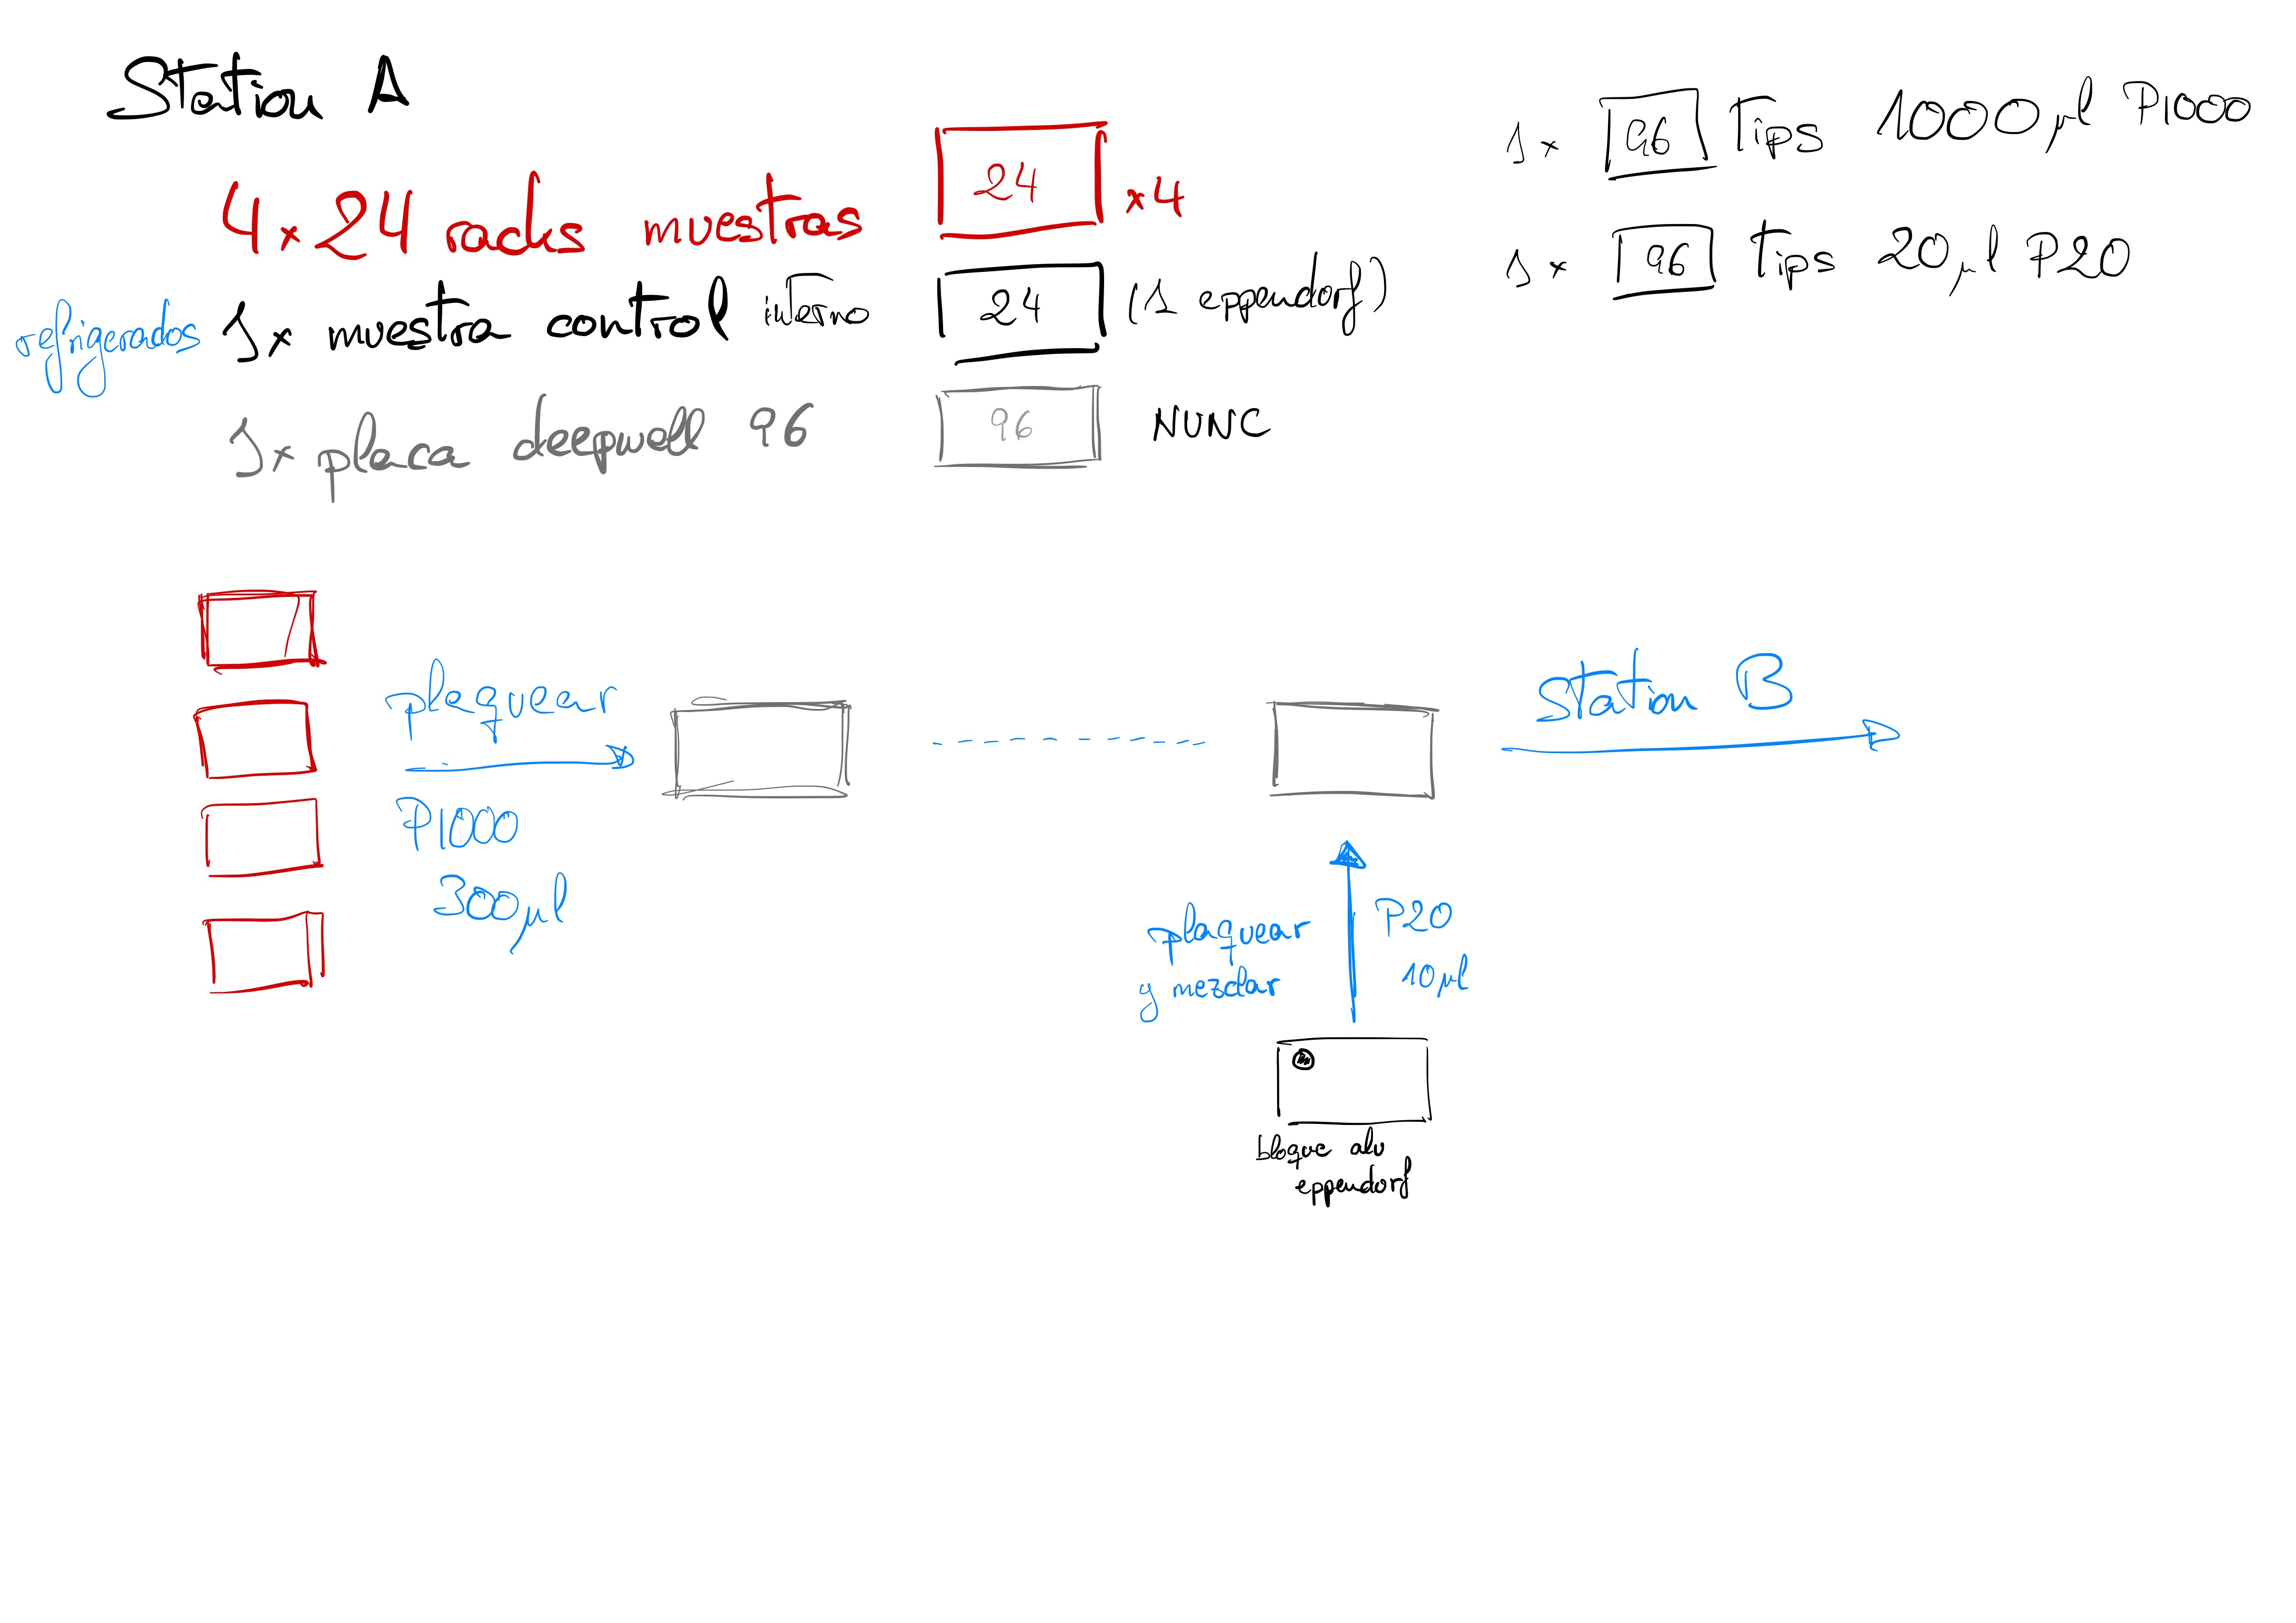 Station A
4 x 24 racks muestras
24
x4
refrigerados
1x muestra control interno
24
(1 eppendorf)
1x placa deepwell 96
96
NUNC
1x 96 Tips 1000 µl P1000
1x 96 Tips 20 µl P20
plaquear
P1000
300 µl
Station B
plaquear
y mezclar
P20
10 µl
bloque alu
eppendorf